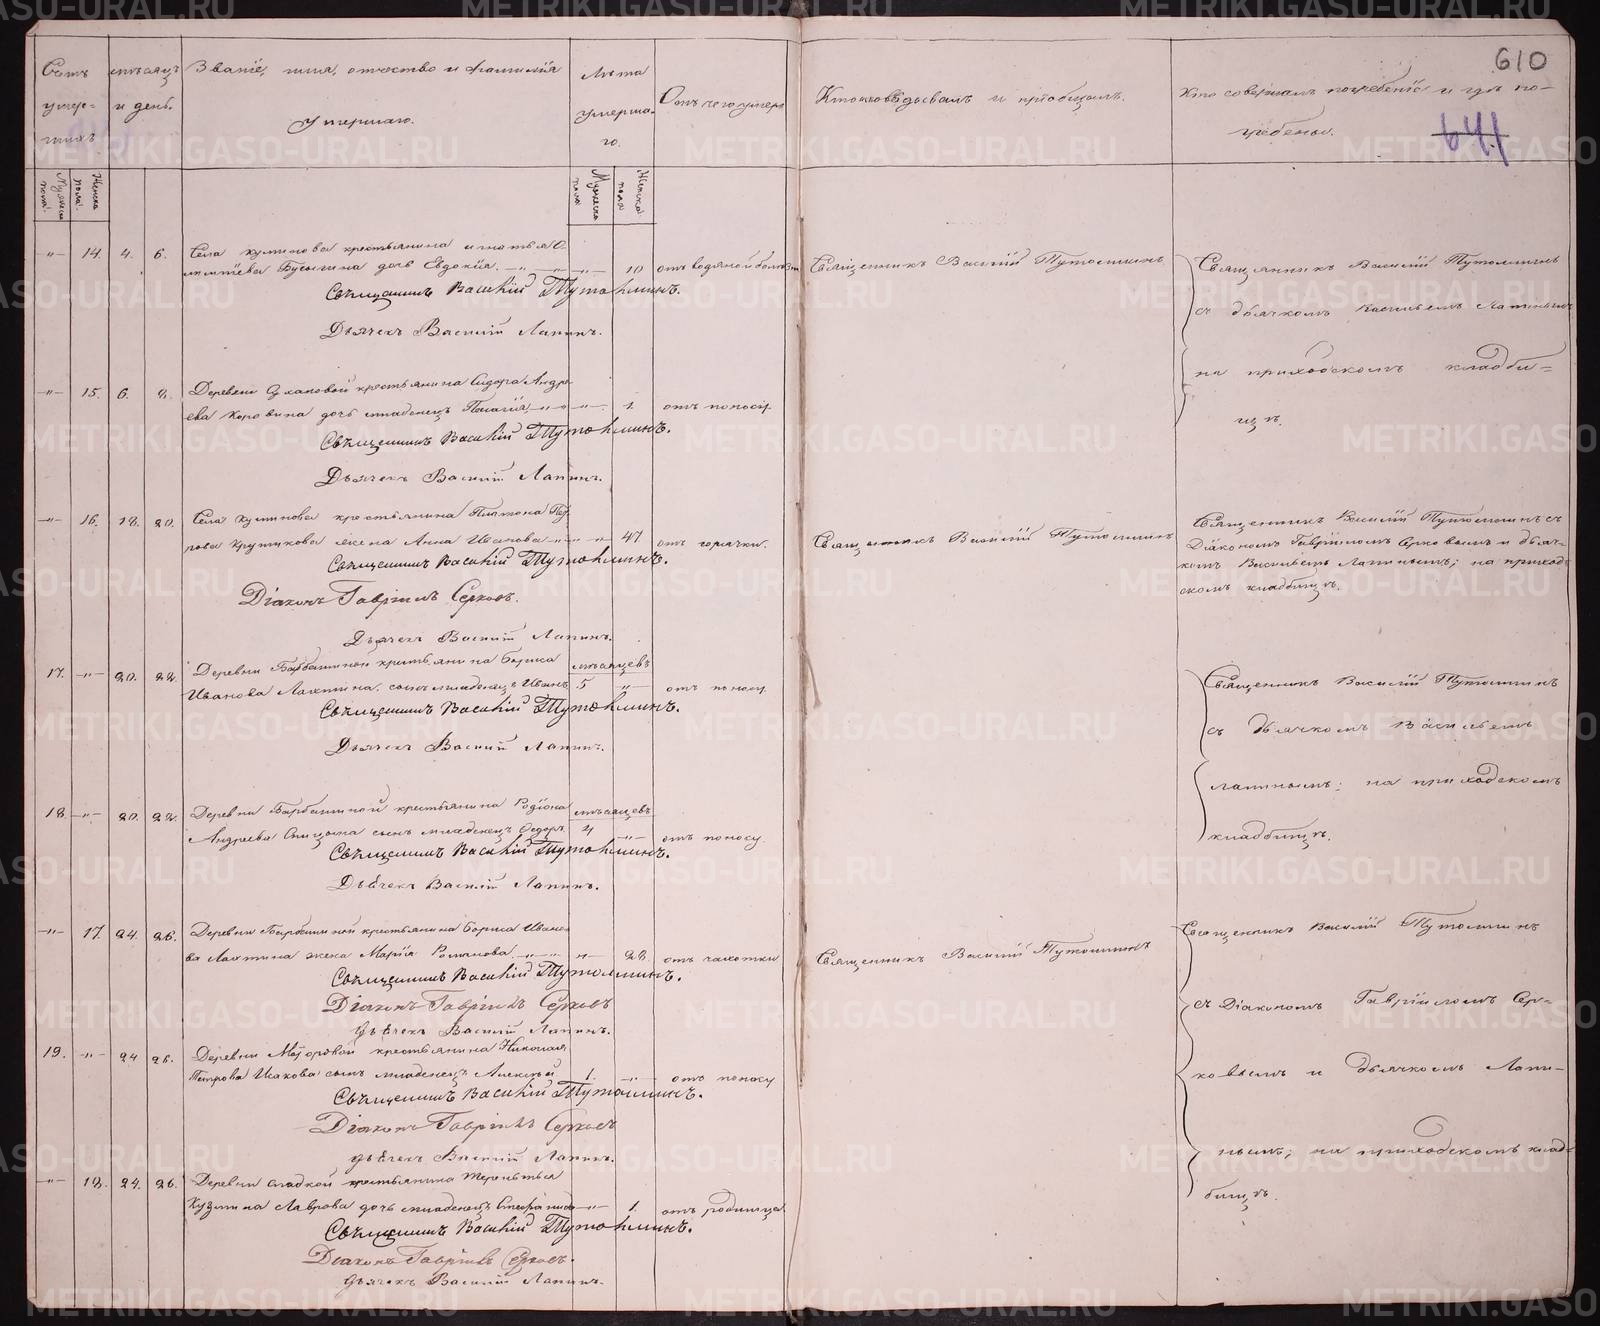 610
641
Счетъ умер-шихъ.
Мѣсяцъ и день.
Званіе, имя, отчество и фамилія
умершаго.
Лѣта
умерша-
го.
Отъ чего умеръ
Кто исповѣдывалъ и пріобщалъ.
Кто совершалъ погребеніе и гдѣ по-
гребены.
Мужеска пола.
Женска пола.
Мужеска пола
Женска пола
-"- 14. 4. 6.
Села крестьянина Игнатья
дочь Евдокія. -"- 10 отъ водяной болѣзни
Священникъ Василій Тутолминъ.
Дьячекъ Василій Лапинъ.
Священникъ Василій Тутолминъ
Священникъ Василій Тутолминъ
съ дьячкомъ Васильемъ Лапинымъ
на приходскомъ кладби=
щѣ.
-"- 15. 6. 8.
Деревни крестьянина Сидора Андре-
ева Коровина дочь младенецъ Пелагія -"- 1. отъ поносу.
Священникъ Василій Тутолминъ.
Дьячекъ Василій Лапинъ.
-"- 16. 18. 20.
Села крестьянина Платона
Крутикова жена Анна Иванова -"- 47 отъ горячки.
Священникъ Василій Тутолминъ.
Діаконъ Гавріилъ Серковъ.
Дьячекъ Василій Лапинъ.
Священникъ Василій Тутолминъ
Священникъ Василій Тутолминъ съ
Діакономъ Гавріиломъ Серковымъ и дьяч-
комъ Васильемъ Лапинымъ; на приход-
скомъ кладбищѣ.
17. -"- 20. 22.
Деревни Барбашиной крестьянина Бориса мѣсяцевъ
Иванова сынъ младенецъ Иванъ 5 -"- отъ поносу.
Священникъ Василій Тутолминъ.
Дьячекъ Василій Лапинъ.
Священникъ Василій Тутолминъ
съ Дьячкомъ Васильемъ
Лапинымъ; на приходскомъ
кладбищѣ.
18. -"- 20. 22.
Деревни Барбашиной крестьянина Родіона мѣсяцевъ
Андреева сынъ младенецъ Ѳедоръ 4 -"- отъ поносу.
Священникъ Василій Тутолминъ.
Дьячекъ Василій Лапинъ.
-"- 17. 24. 26.
Деревни Барбашиной крестьянина Бориса Ивано-
ва жена Марія Романова. -"- 28. отъ чахотки
Священникъ Василій Тутолминъ.
Діаконъ Гавріилъ Серковъ
Дьячекъ Василій Лапинъ.
Священникъ Василій Тутолминъ
Священникъ Василій Тутолминъ
съ Діакономъ Гавріиломъ Сер=
ковымъ и Дьячкомъ Лапи-
нымъ; на приходскомъ клад-
бищѣ.
19. -"- 24 26.
Деревни крестьянина Николая
Петрова Исакова сынъ младенецъ Алексѣй 1. -"- отъ поносу
Священникъ Василій Тутолминъ.
Діаконъ Гавріилъ Серковъ
Дьячекъ Василій Лапинъ.
-"- 18. 24. 26.
Деревни Сладкой крестьянина Терентья
Кузьмина Лаврова дочь младенецъ Стефанида -"- 1. отъ родимца
Священникъ Василій Тутолминъ.
Діаконъ Гавріилъ Серковъ.
Дьячекъ Василій Лапинъ.
METRIKI.GASO-URAL.RU